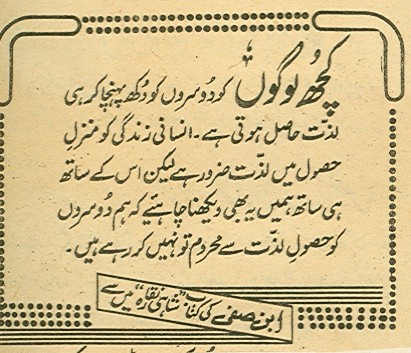 کچھ لوگوں کو دوسروں کو دُکھ پہنچا کر ہی
لذت حاصل ہوتی ہے۔ انسانی زندگی کو منزلِ
حصول میں لذّت ضرور ہے لیکن اس کے ساتھ
ہی ساتھ ہمیں یہ بھی دیکھنا چاہئیے کہ ہم دُوسروں
کو حصولِ لذّت سے محروم تو نہیں کر رہے ہیں۔
ابنِ صفی کی کتاب "شاہی نقارہ" میں سے